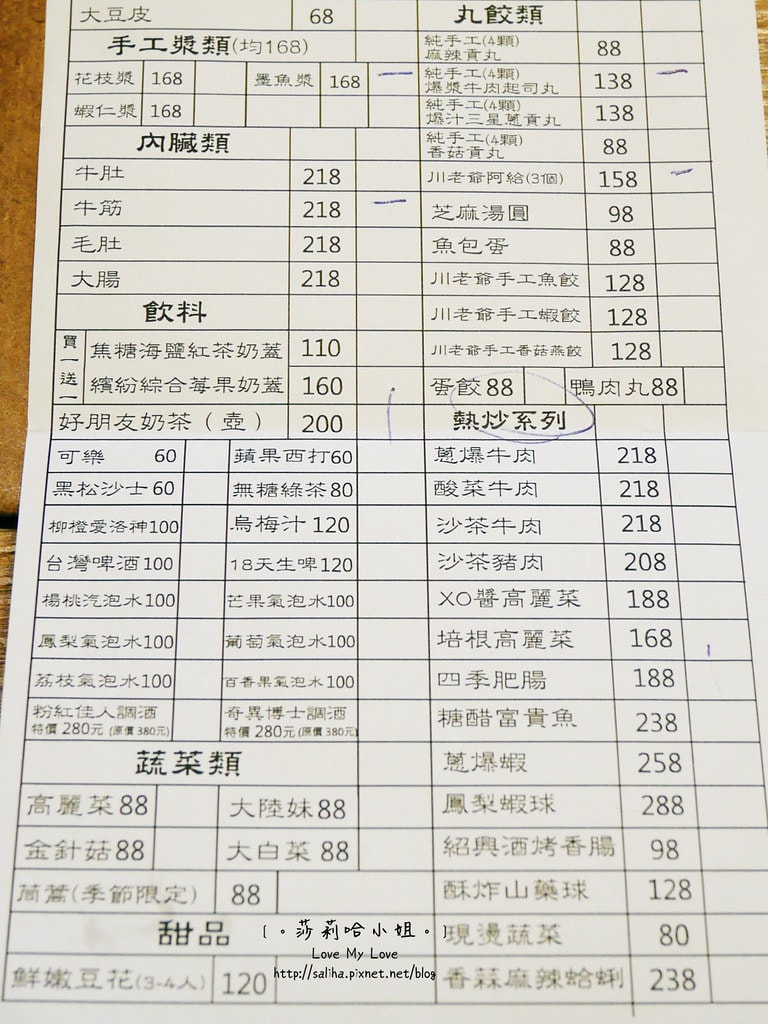 大豆皮 68
手工漿類(均168)
花枝漿 168 墨魚漿 168 一
蝦仁漿 168
內臟類
牛肚 218
牛筋 218 一
毛肚 218
大腸 218
飲料
買一送一
焦糖海鹽紅茶奶蓋 110
繽紛綜合莓果奶蓋 160
好朋友奶茶（壺） 200
可樂 60 蘋果西打60
黑松沙士60 無糖綠茶80
柳橙愛洛神100 烏梅汁120
台灣啤酒100 18天生啤120
楊桃汽泡水100 芒果氣泡水100
鳳梨氣泡水100 葡萄氣泡水100
荔枝氣泡水100 百香果氣泡水100
粉紅佳人調酒 奇異博士調酒
特價 280元 (原價 380元) 特價 280元 (原價 380元)
蔬菜類
高麗菜88 大陸妹88
金針菇88 大白菜 88
茼蒿(季節限定) 88
甜品
鮮嫩豆花(3-4人) 120
丸餃類
純手工(4顆)
麻辣貢丸 88
純手工(4顆)
爆漿牛肉起司丸 138 一
純手工(4顆)
爆汁三星蔥貢丸 138
純手工(4顆)
香菇貢丸 88
川老爺阿給(3個) 158 一
芝麻湯圓 98
魚包蛋 88
川老爺手工魚餃 128
川老爺手工蝦餃 128
川老爺手工香菇燕餃 128
蛋餃88 鴨肉丸88
熱炒系列
蔥爆牛肉 218
酸菜牛肉 218
沙茶牛肉 218
沙茶豬肉 208
XO醬高麗菜 188
培根高麗菜 168
四季肥腸 188
糖醋富貴魚 238
蔥爆蝦 258
鳳梨蝦球 288
紹興酒烤香腸 98
酥炸山藥球 128
現燙蔬菜 80
香蒜麻辣蛤蜊 238
〔。莎莉哈小姐。〕
Love My Love
http://saliha.pixnet.net/blog